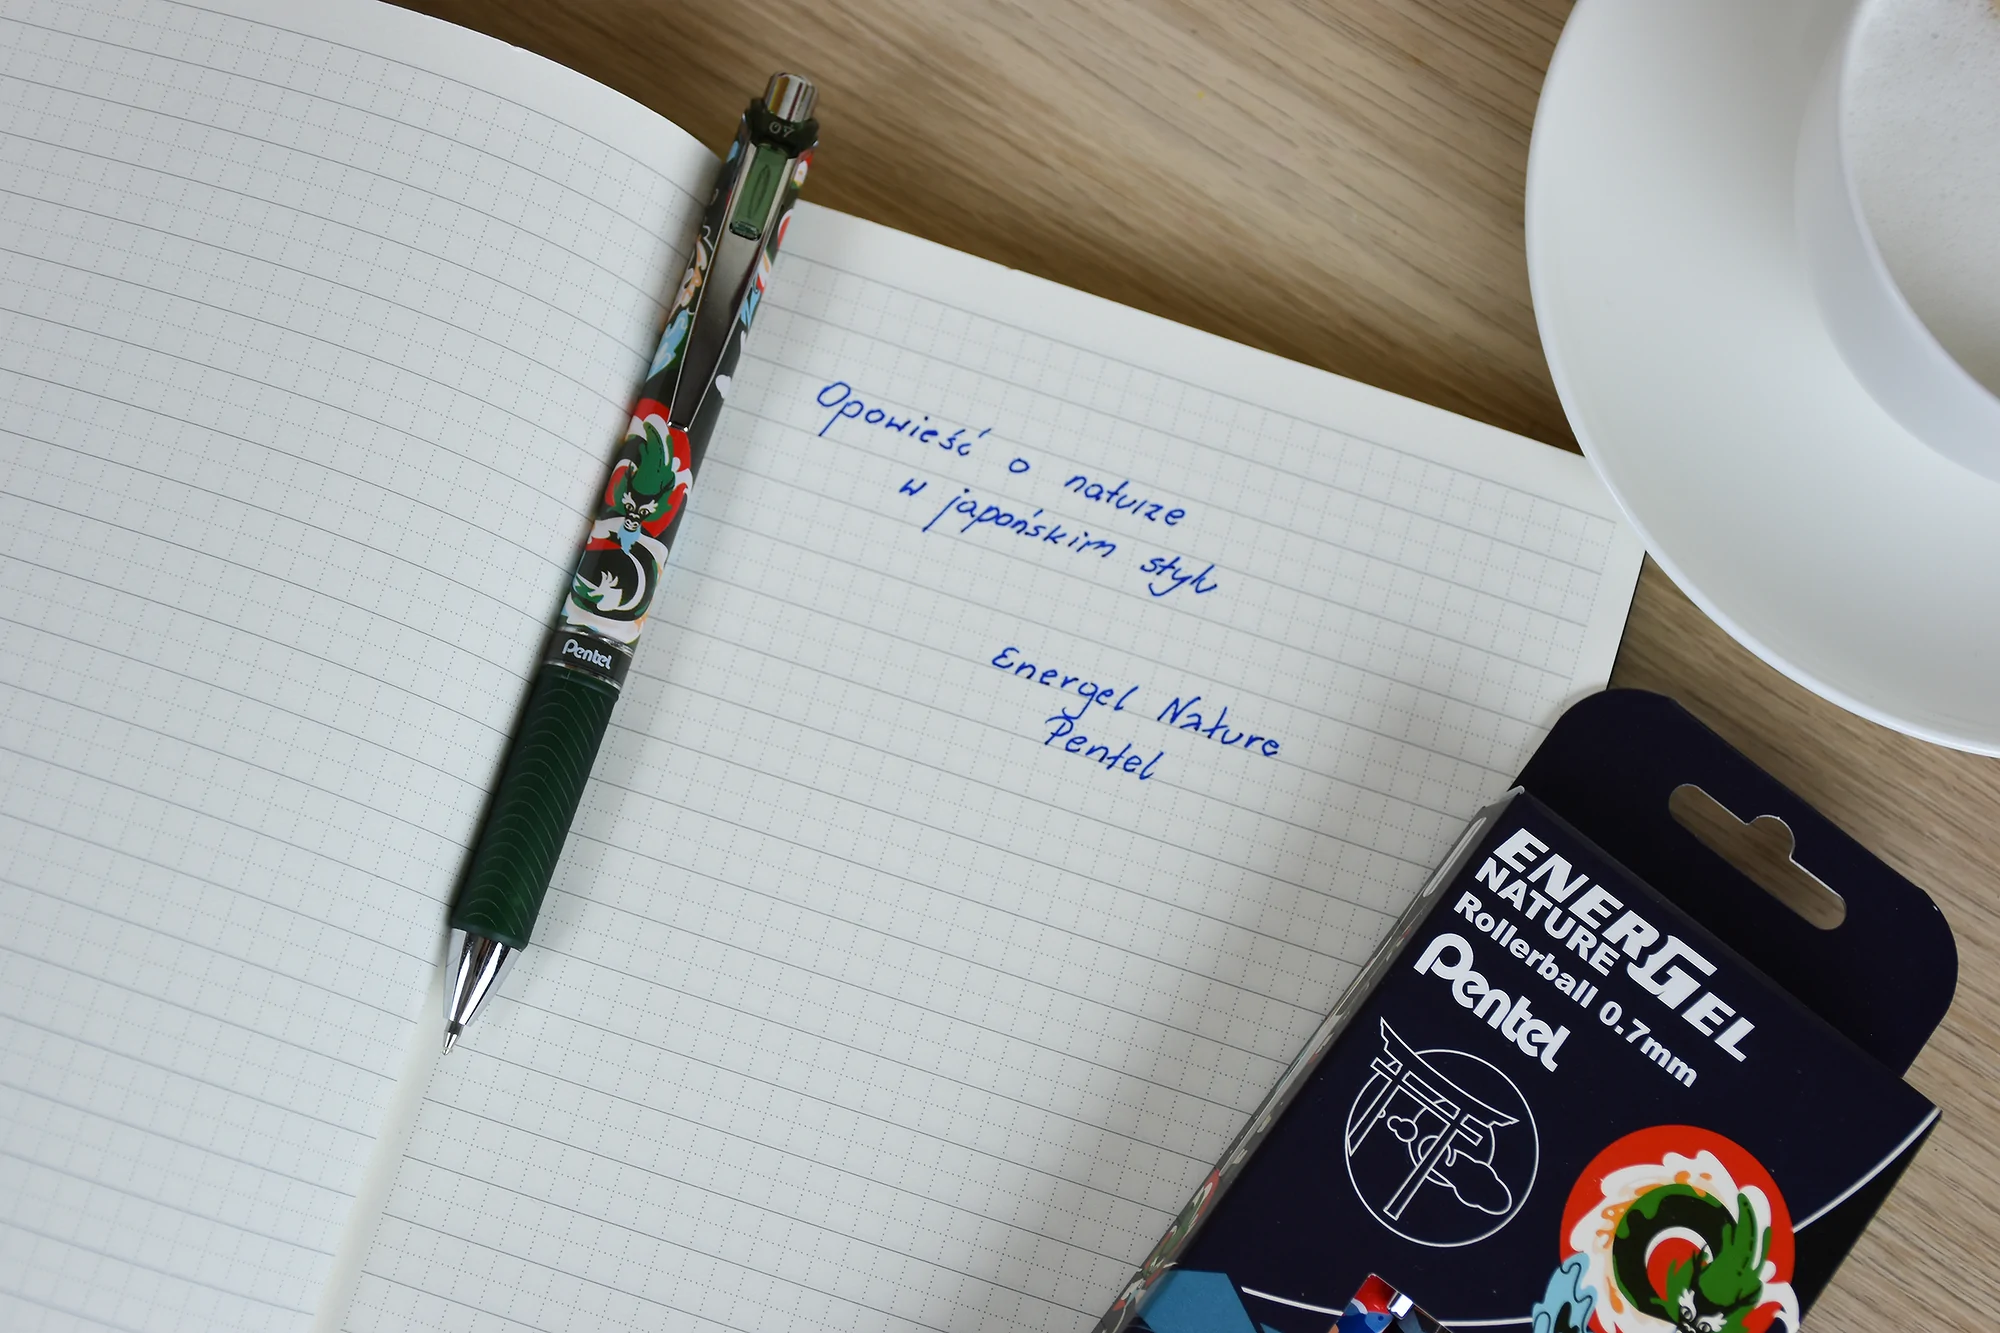 07
Pentel
Opowieść o naturze
w japońskim stylu
Energel Nature
Pentel
ENERGEL
NATURE
Rollerball 0.7mm
Pentel